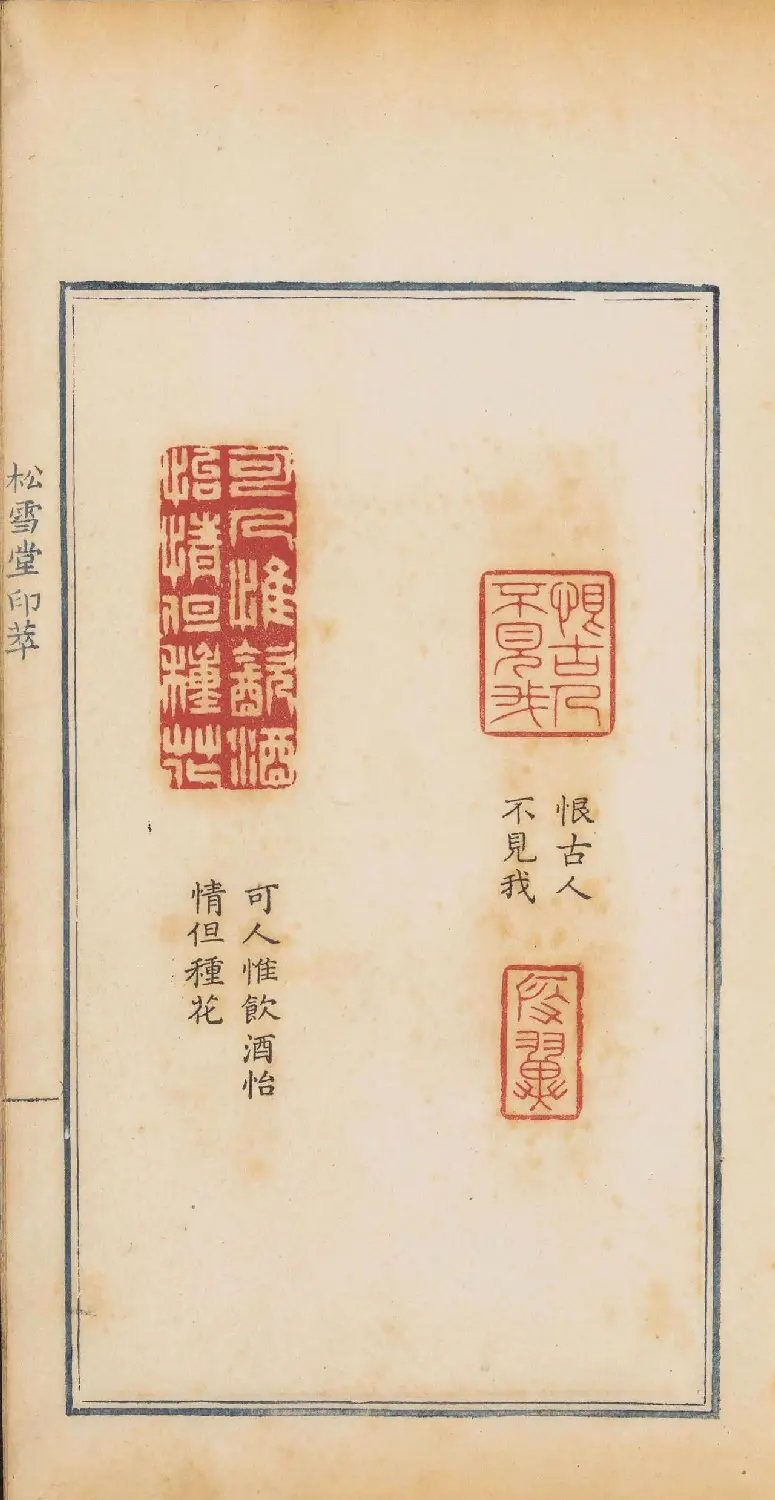 恨古人
不見我
恨古人
不見我
可人惟飲酒
怡情但種花
可人惟飲酒怡
情但種花
松雪堂印萃